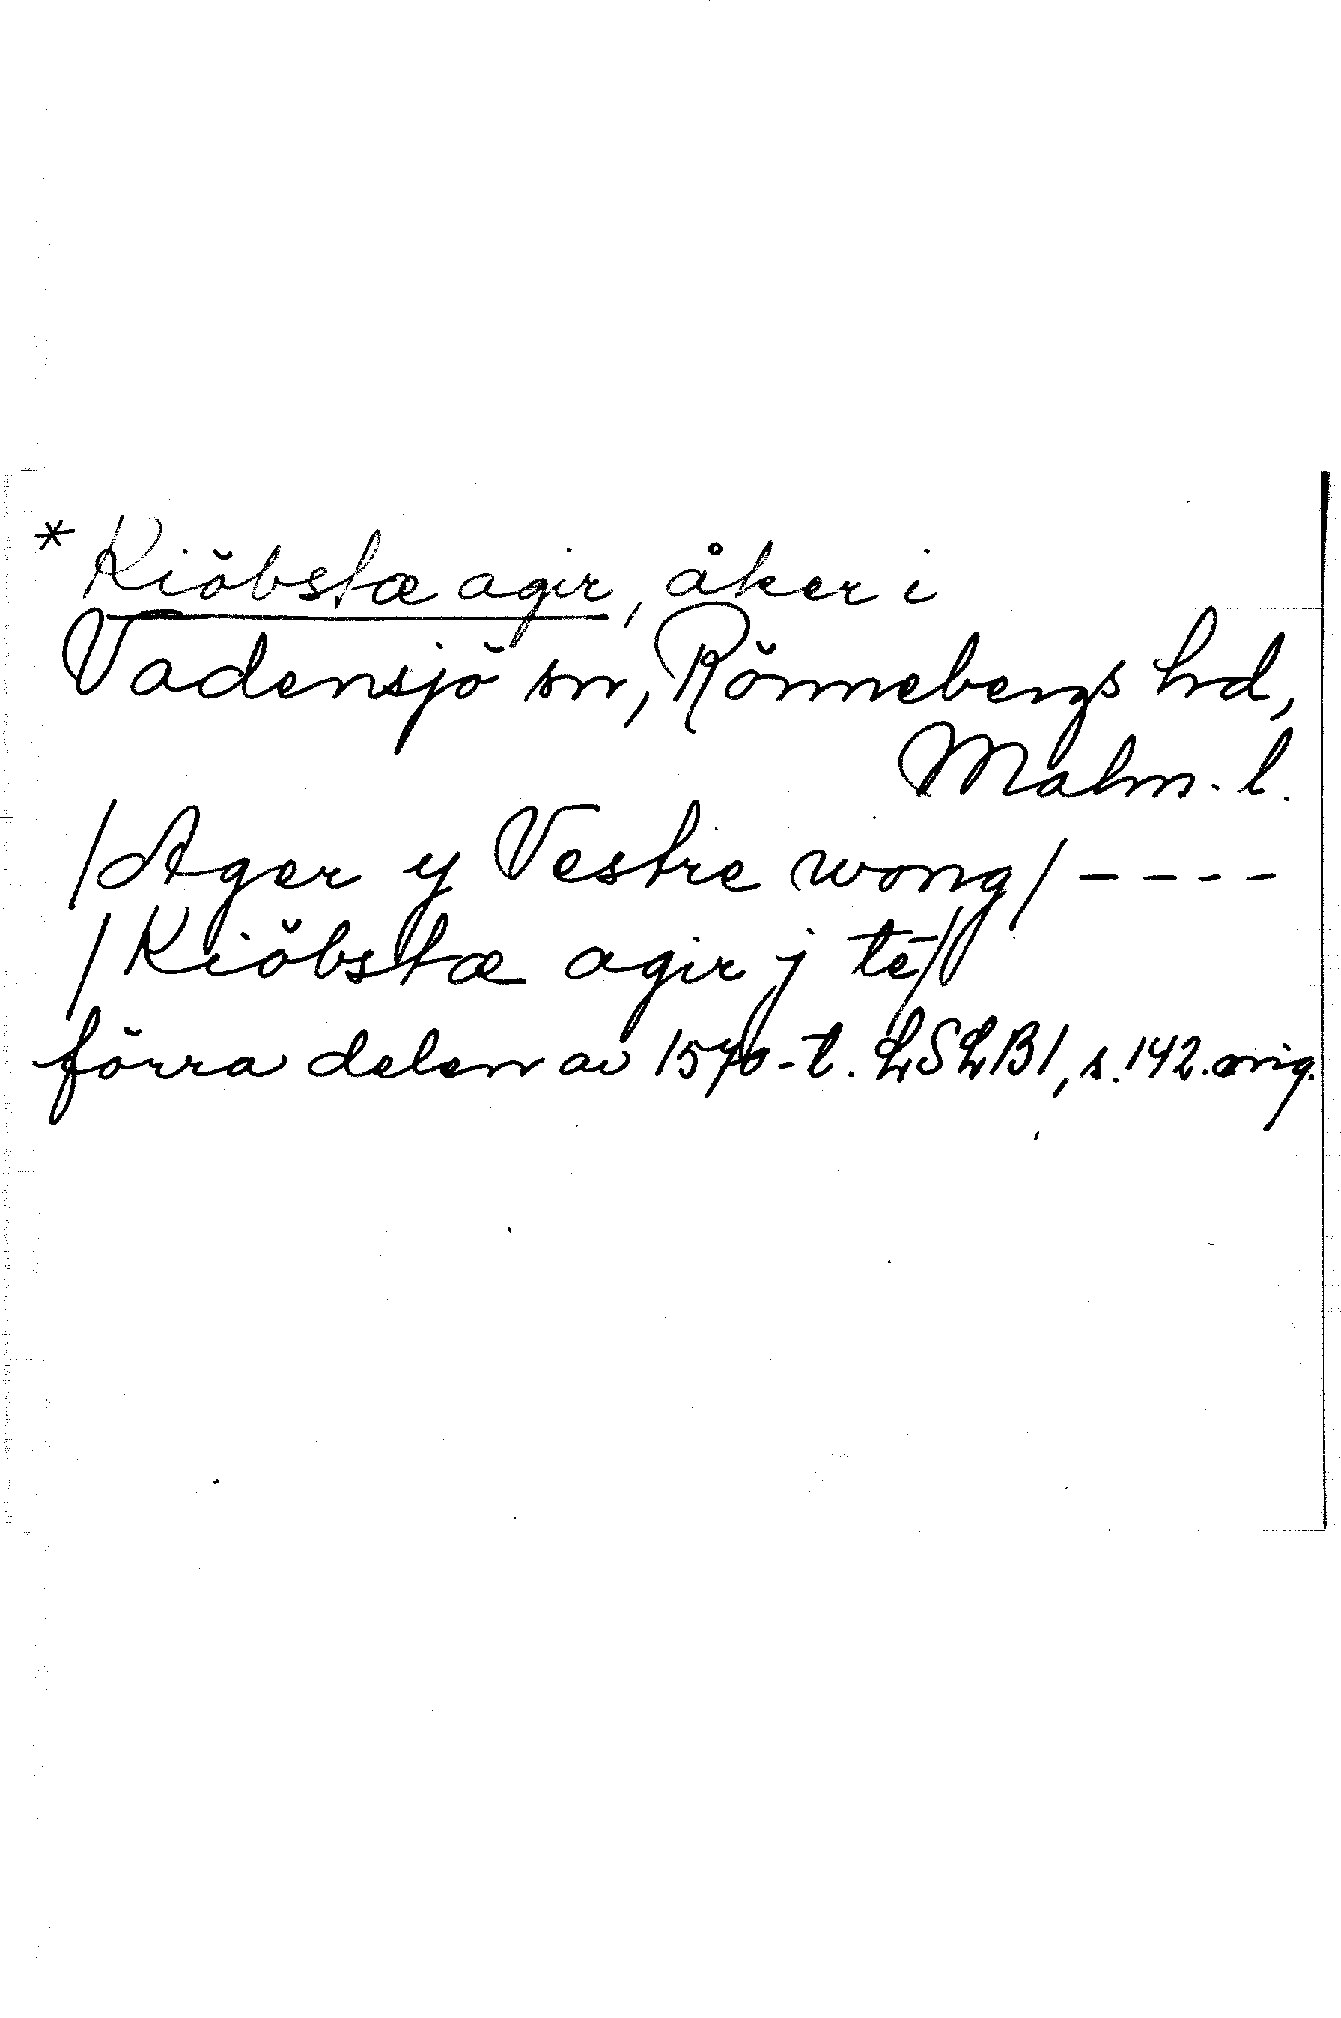 * Kiöbstæ agir, åker i
Vadensjö sn, Rönnebergs hd,
Malm. l.
/Ager y Vestre wong/ - - - -
/Kiöbstæ agir j tē//
förra delen av 1570-t. LSLB1, s. 142. orig.